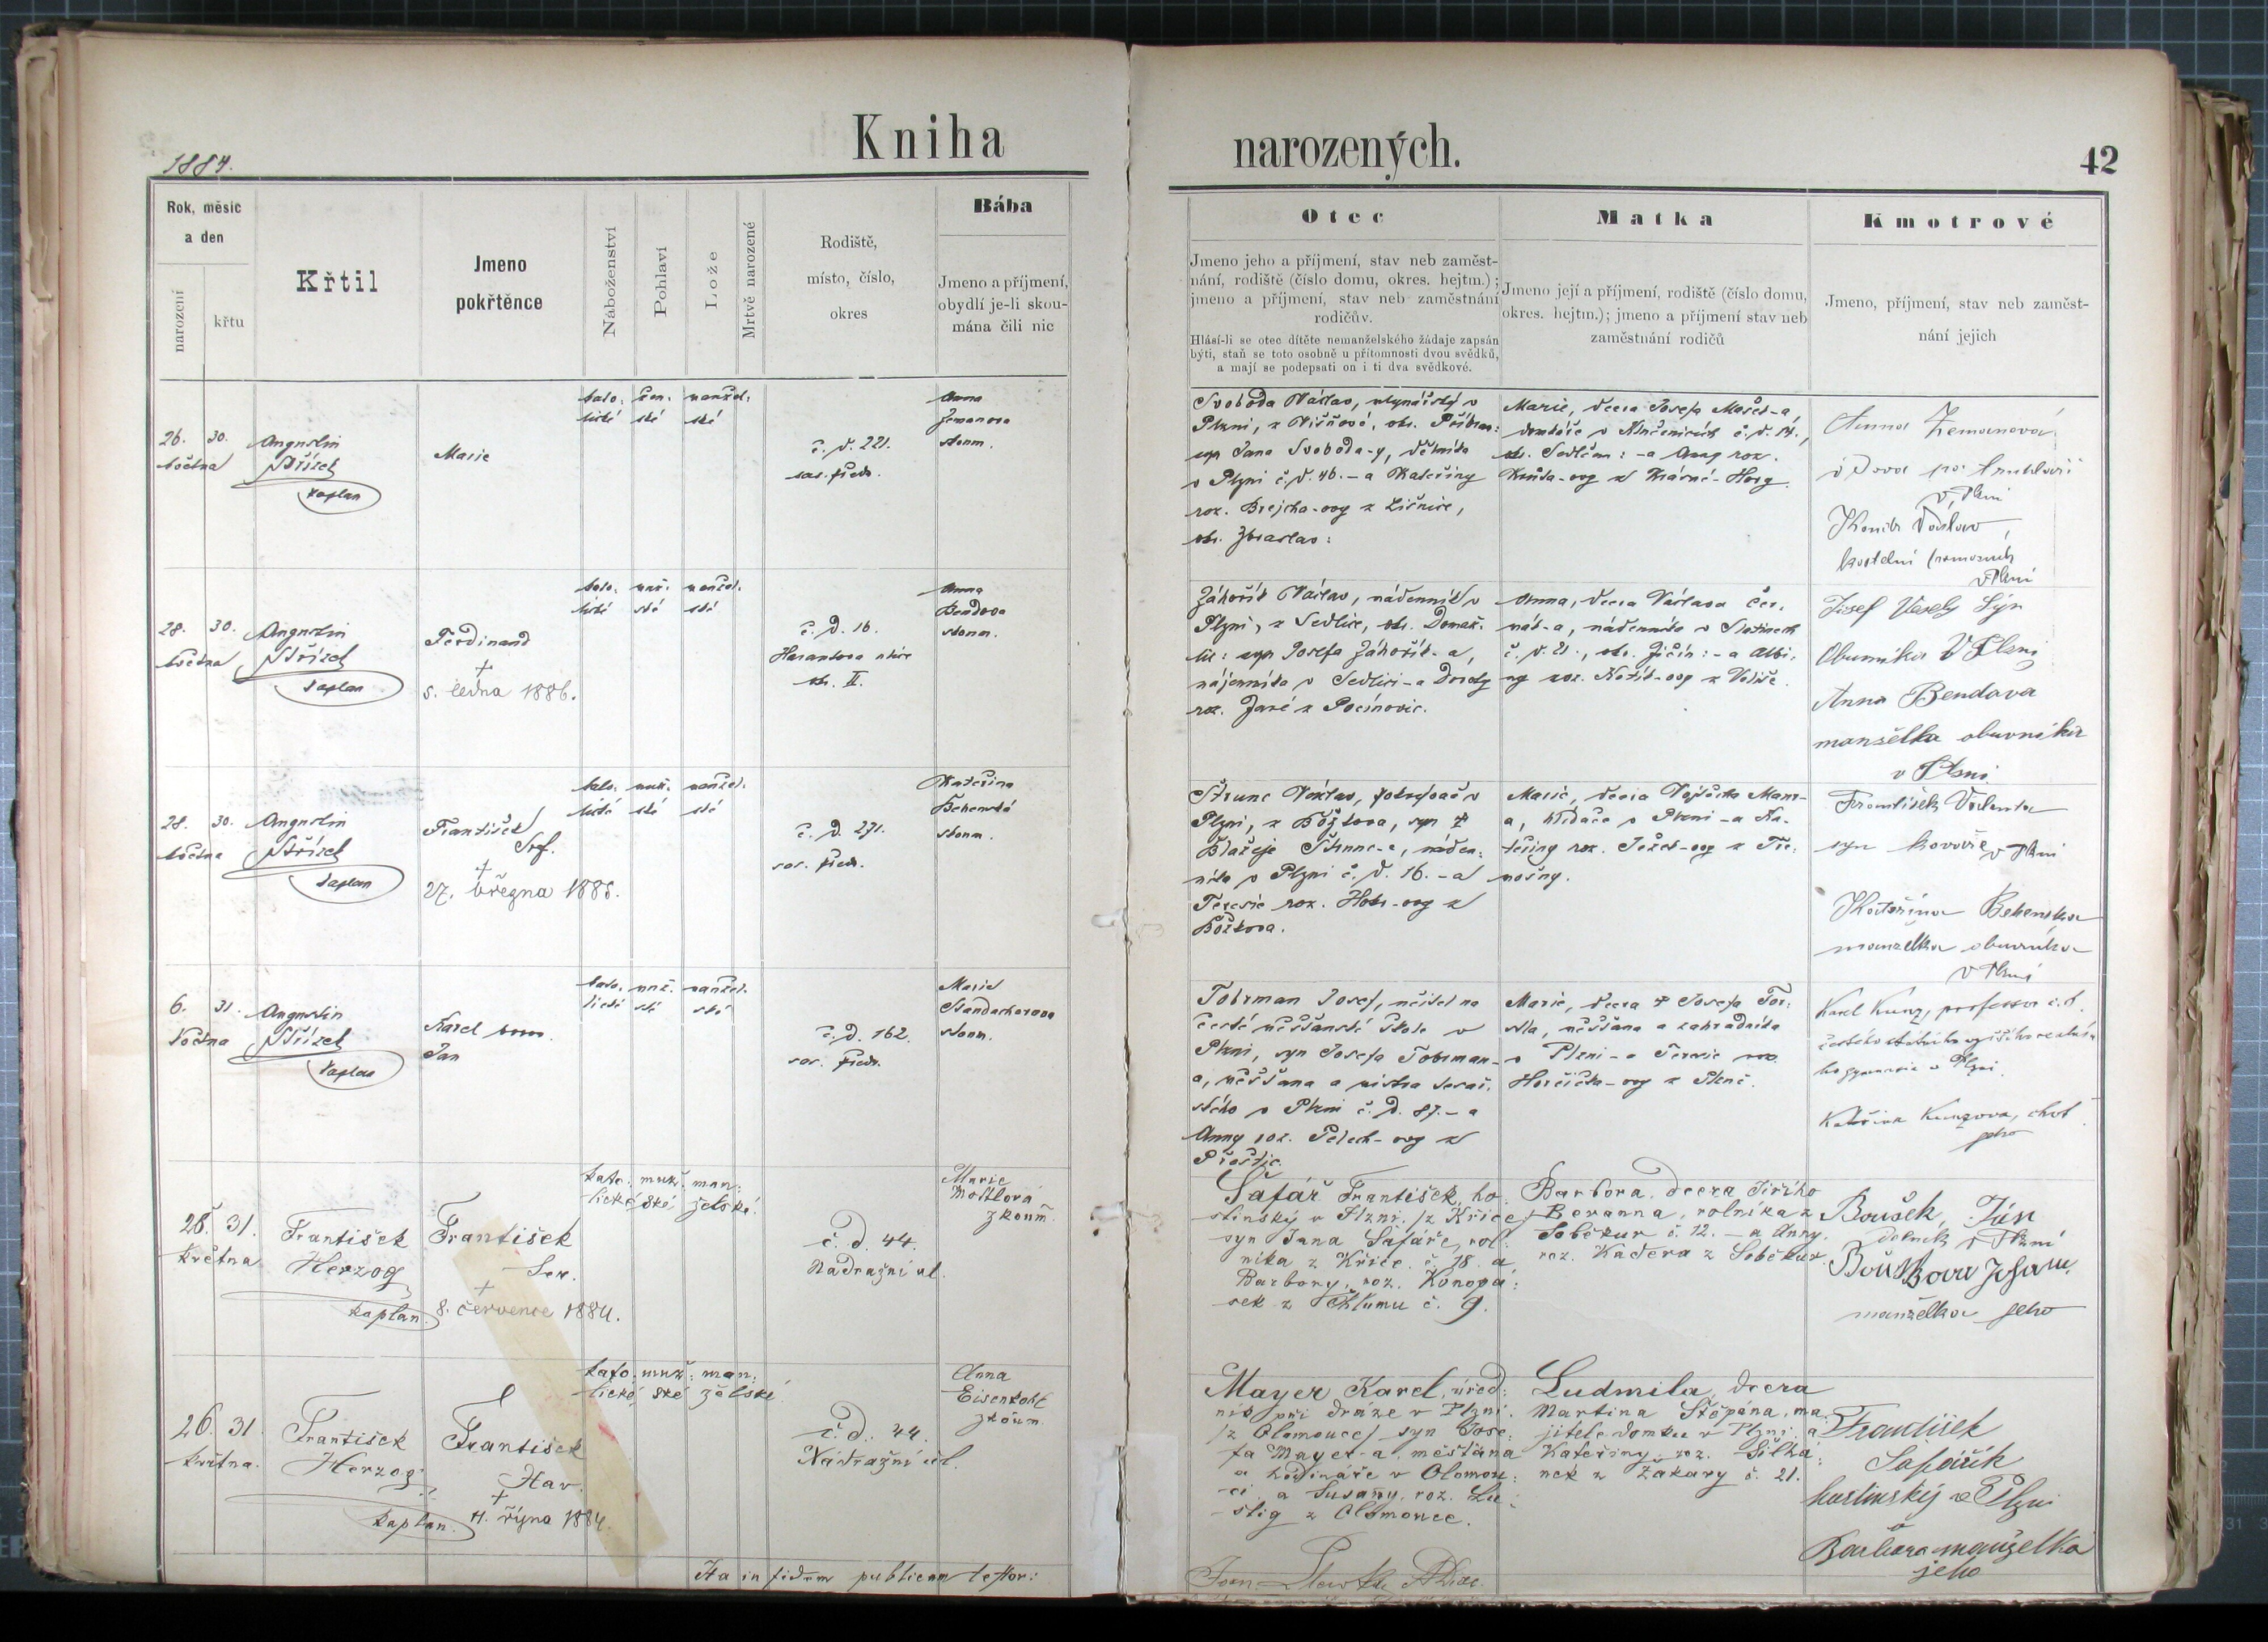 1884.
Kniha narozených.
42
Rok, měsíc
a den
narození
křtu
Křtil
Jmeno
pokřtěnce
Náboženství
Pohlaví
Lože
Mrtvě narozené
Rodiště,
místo, číslo,
okres
Bába
Jmeno a příjmení,
obydlí je-li skou-
mána čili nic
Otec
Jmeno jeho a příjmení, stav neb zaměst-
nání, rodiště (číslo domu, okres. hejtm.);
jmeno a příjmení, stav neb zaměstnání
rodičův.
Hlásí-li se otec dítěte nemanželského žádaje zapsán
býti, staň se toto osobně u přítomnosti dvou svědků,
a mají se podepsati on i ti dva svědkové.
Matka
Jmeno její a příjmení, rodiště (číslo domu,
okres. hejtm.); jmeno a příjmení stav neb
zaměstnání rodičů
Kmotrové
Jmeno, příjmení, stav neb zaměst-
nání jejich
26. 30.
května
Augustin
Střízek
kaplan
Marie
kato: žen: manžel:
lické ské ské
č. d. 221.
sas. předm.
Anna
Zemanova
zkoum.
Svoboda Václav, mlynářský v
Plzni, z Višňové, okr. Příbram:
syn Jana Svoboda-y, dělníka
v Plzni č. d. 46. - a Kateřiny
roz. Brejcha-ovy z Líšnice,
okr. Zbraslav:
Marie, dcera Josefa Mašek-a,
domkáře v Klučenicích č. d. 14.,
okr. Sedlčan: - a Anny roz.
Anna Zemanová
vdova po truhláři
v Plzni
Václav
v Plzni
28. 30.
května
Augustin
Střízek
kaplan
Ferdinand
†
5. ledna 1886.
kato: muž: manžel:
lické ské ské
č. d. 16.
Harantova ulice
okr. II.
Anna
Bendova
zkoum.
Záhořík Václav, nádenník v
Plzni, z Sedlice, okr. Domaž:
lic: syn Josefa Záhořík-a,
nájemníka v Sedlici - a Doroty
roz. Jaré z Pocínovic.
Anna, dcera Václava Čer:
nák-a, nádenníka v Slatinech
č. d. 21., okr. Jičín: - a Albi:
ny roz. Kotík-ovy z Veliše.
Josef Vesely Syn
Obuvníka V Plzni
Anna Bendava
manželka obuvníka
v Plzni
28. 30.
května
Augustin
Střízek
kaplan
František
Srf.
†
27. března 1885.
kato: muž: manžel:
lické ské ské
č. d. 271.
sas. předm.
Kateřina
Behenská
zkoum.
Štrunc Václav, v
Plzni, z Božkova, syn †
Blažeje Štrunc-e, náden:
níka v Plzni č. d. 16. - a
Teresie roz. Hobr-ovy z
Božkova.
Marie, dcera Vojtěcha Maur-
a, hlídače v Plzni - a Ka-
teřiny roz. Ježek-ovy z Tře:
mošny.
František Valenta
syn kováře v Plzni
Kateřina Behenska
manzelka obuvníka
v Plzni
6. 31.
května
Augustin
Střízek
kaplan
Karel
Jan
kato: muž: manžel:
lické ské ské
č. d. 162.
sas. předm.
Marie
Standarkerova
zkoum.
Tobrman Josef, učitel na
české měšťanské škole v
Plzni, syn Josefa Tobrman-
a, měšťana a mistra
v Plzni č. d. 87. - a
Anny roz. Pelech-ovy z
Přeštic.
Marie, dcera † Josefa
měšťana a zahradníka
v Plzni - a Teresie roz.
Horčička-ovy z Plzně.
Karel Kunz, professor c. k.
českého státního vyššího reálné-
ho gymnasia v Plzni.
Kateřina Kunzova, choť
jeho
28. 31.
května
František
Herzog
kaplan.
František
Ser.
†
8. července 1884.
kato: muž: man:
lické ské želské.
č. d. 44.
Nádražní ul.
Marie
Moltlová
zkoum.
Šafář František, ho
stinský v Plzni. /z Křice/
syn Jana Šafáře, rol:
níka z Křice. č. 18. a
Barbory, roz. Konopá:
sek z Chlumu č. 9.
Barbora, dcera Jiřího
Beranna, rolníka z
Soběkur č. 12. - a Anny.
roz. Kadera z Soběkur.
Boušek, Ján
dělník v Plzni
manželka jeho
26. 31.
května.
František
Herzog
kaplan.
František
Hav.
†
11. října 1884.
kato: muž: man:
lické ské želské
č. d. 44.
Nádražní úl.
Anna
Eisenkolf
zkoum.
Mayer Karel, úřed:
ník při dráze v Plzni.
/z Olomouce/ syn Jose:
fa Mayer-a, měšťana
a hodináře v Olomou:
ci a Susany, roz. Lu:
stig z Olomouce.
Ludmila, dcera
Martina Štěpána, ma:
jitele domku v Plzni a
Kateřiny, roz. Šilhá:
nek z Žákavy č. 21.
František
Šafařík
hostinský v Plzni
Barbora manželka
jeho
Ita in fidem publicam testor: